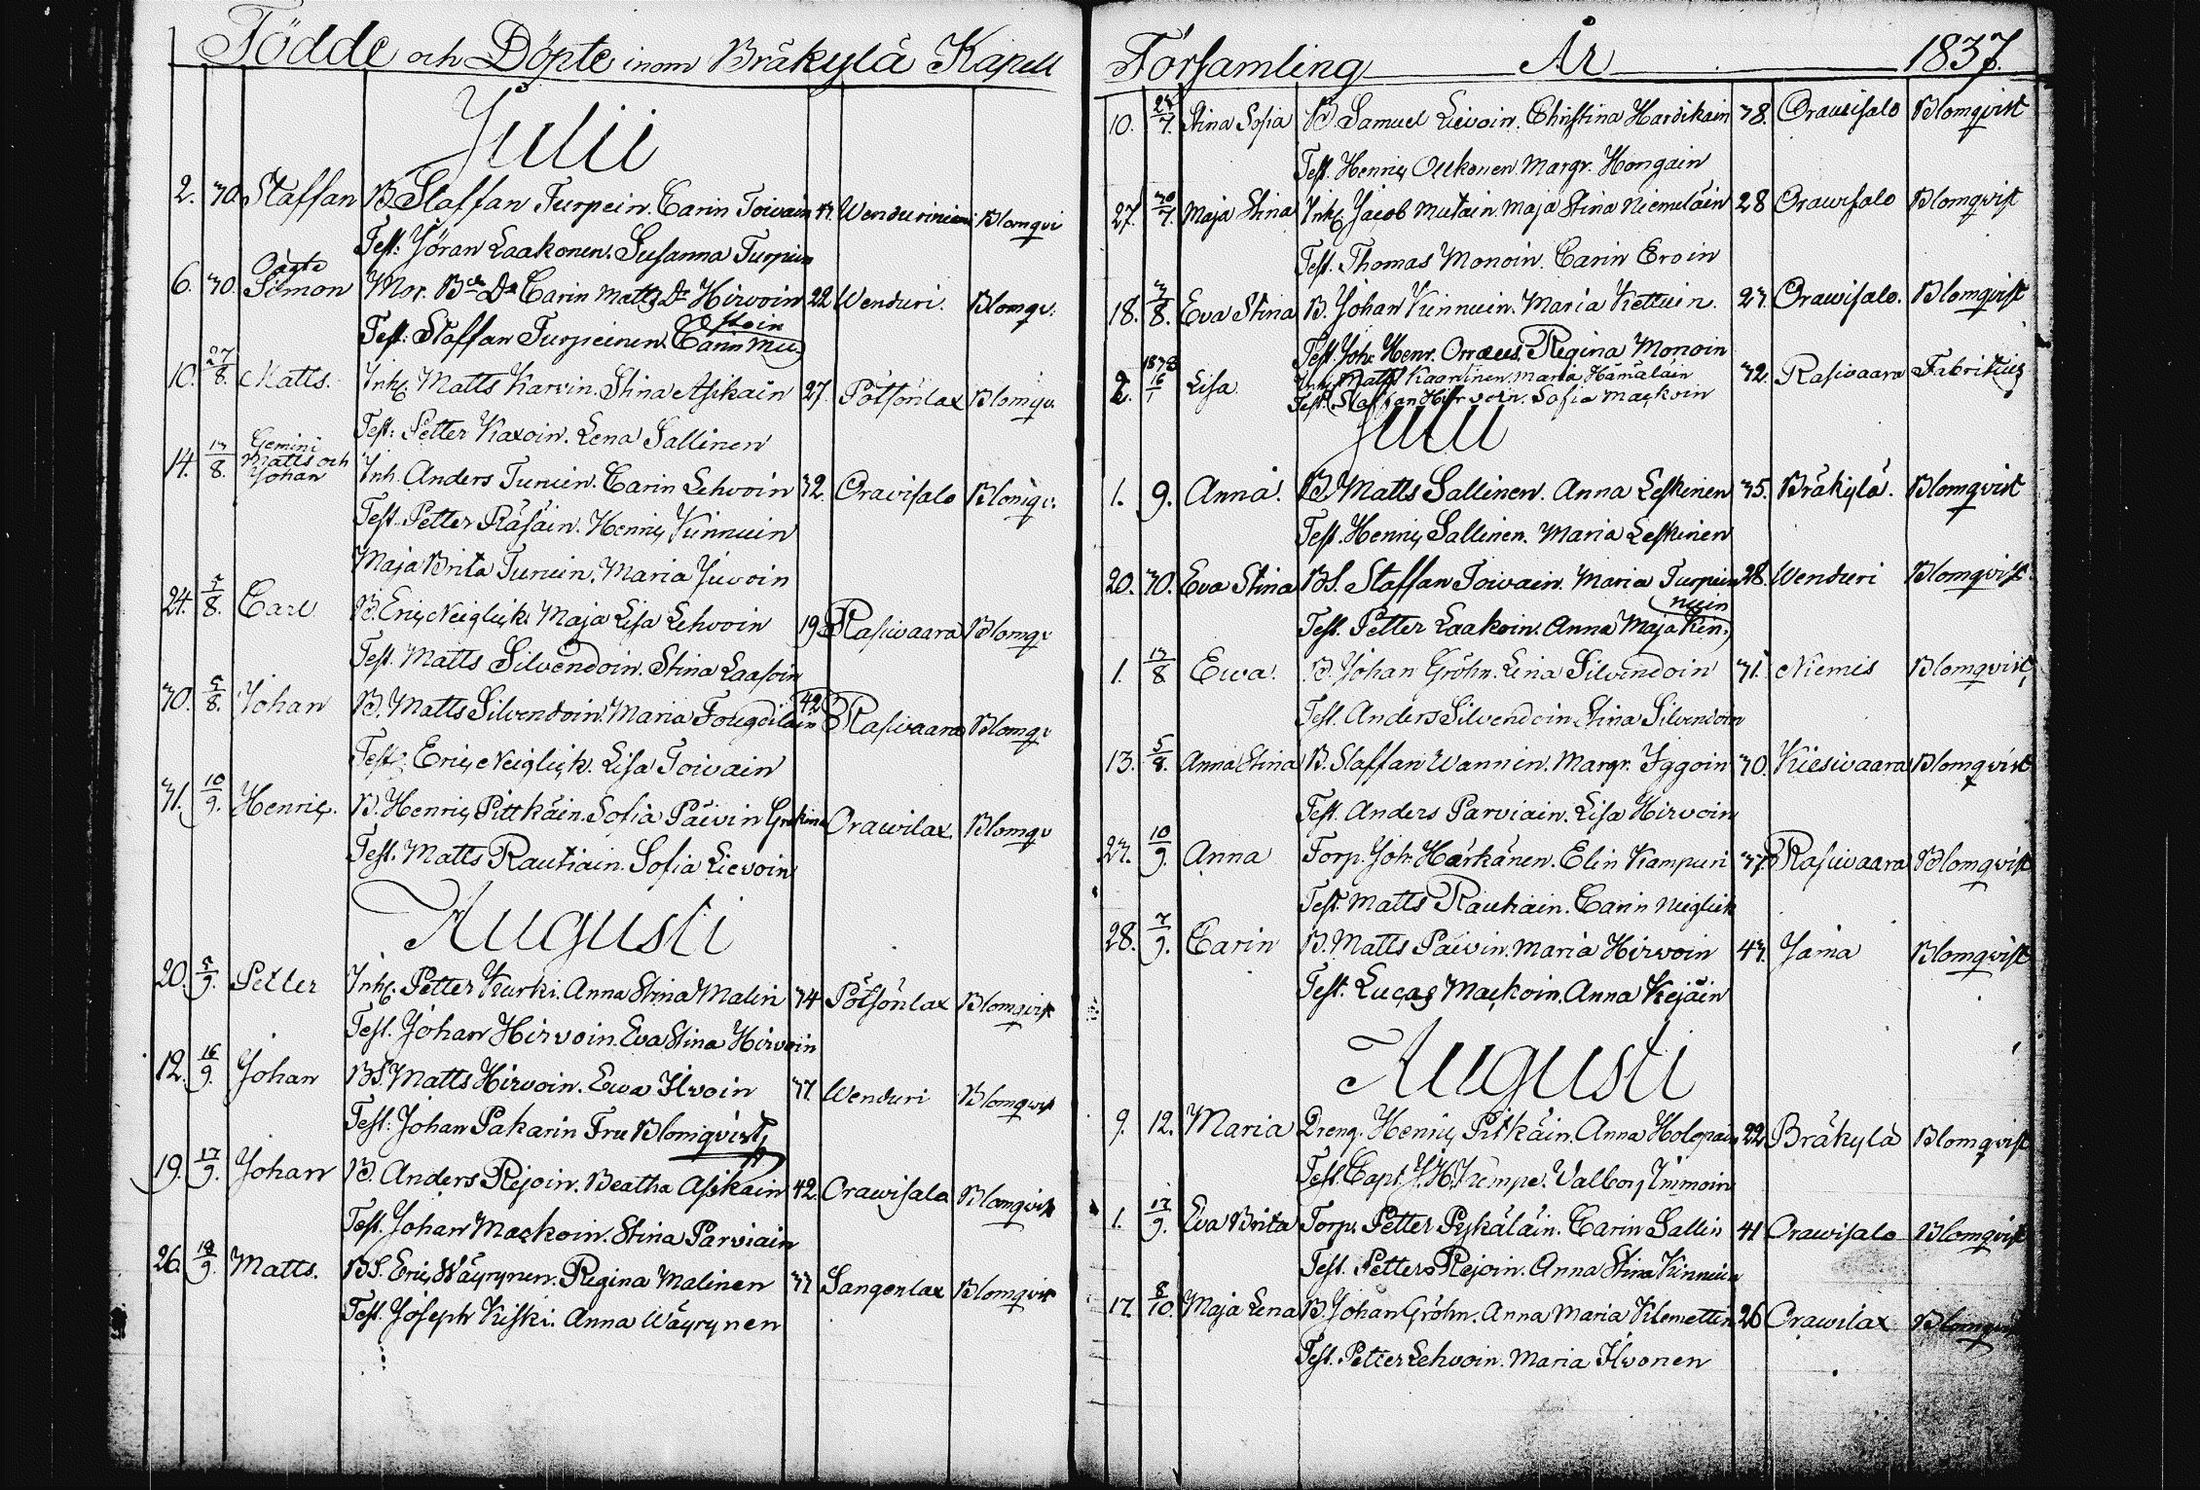 Födde och Döpte inom Bräkylä Kapell
Julii
2. 30. Staffan B. Staffan Turpein. Carin Toivain Blomqvi
Test: Jöran Laakonen. Susanna Turpein
Oägta
6. 30. Simon Mor. Carin Matts Dr Hirvoin 22 Wenduri. Blomqv.
Test: Staffan Turpeinen. Carin Mustoin
10. 27/8. Matts. Inh. Matts Karvin. Stina Asikain 27. Pötsönlax Blomqv.
Test: Petter Kaxoin. Lena Sallinen
Gemini
14. 13/8. Matts och Johan Inh. Anders Turuin. Carin Lehvoin 32. Oravisalo Blomqv.
Test. Petter Räsäin. Henric Kinnuin
Maja Brita Turuin. Maria Juvoin
24. 5/8. Carl B. Eric Neiglick. Maja Lisa Lehvoin 19 Rasivaara Blomqv
Test. Matts Silvendoin. Stina Laasoin
30. 5/8. Johan B. Matts Silvendoin. Maria Fougdilain 42 Rasivaara Blomqv
Test. Eric Neiglick. Lisa Toivain
31. 10/9. Henric. B. Henric Pittkäin. Sofia Päivin Orawilax. Blomqv
Test. Matts Rautiain. Sofia Lievoin
Augusti
20. 5/9. Petter Inh. Petter Kurki. Anna Stina Malin 34 Pötsönlax Blomqvist
Test. Johan Hirvoin. Eva Stina Hirvoin
12. 16/9. Johan BS. Matts Hirvoin. Ewa Ilvoin 37. Wenduri Blomqvist
Test: Johan Pakarin Fru Blomqvist
19. 17/9. Johan B. Anders Rejoin. Beatha Asikain 42. Orawisala Blomqvist
Test. Johan Mackoin. Stina Parviain
26. 19/9. Matts. BS. Eric Wäyrynen. Regina Malinen 37 Sangenlax Blomqvist
Test. Joseph Kiski. Anna Wäyrynen
Församling År 1837.
10. 23/7. Stina Sofia B. Samuel Lievoin. Christina Hardikain 38. Orawisalo Blomqvist
Test. Henric Ockonen. Margr. Hongain
27. 30/7. Maja Stina Inh. Jacob Mutain. Maja Stina Niemeläin 28 Orawisalo Blomqvist
Test. Thomas Monoin. Carin Eroin
18. 3/8. Eva Stina B. Johan Kinnuin. Maria Kettuin. 23. Orawisalo. Blomqvist
Test. Joh. Henr. Orraeus. Regina Monoin
2. 1838 16/1 Lisa Inh. Matts Kaarinen. Maria Hämäläin 32. Rasivaara Fabritius
Test. Staffan Hirvoin. Sofia Mackoin
Julii
1. 9. Anna. B. Matts Sallinen. Anna Leskinen 35. Bräkylä. Blomqvist
Test. Henric Sallinen. Maria Leskinen
20. 30. Eva Stina BS. Staffan Toivain. Maria Turpein 28. Wenduri Blomqvist.
Test. Petter Laakoin. Anna Maja Kinnuin
1. 13/8 Ewa. B. Johan Gröhn. Lena Silvendoin 31. Niemis Blomqvist,
Test. Anders Silvendoin Stina Silvendoin
13. 5/8. Anna Stina B. Staffan Wannin. Margr. Iggoin 30. Kiesivaara Blomqvist
Test. Anders Parviain. Lisa Hirvoin
23. 10/9. Anna Torp. Joh. Härkänen. Elin Kampuri 37. Rasivaara Blomqvist
Test. Matts Rautiain. Carin Neiglick
28. 7/9. Carin B. Matts Päivin. Maria Hirvoin 43. Jama Blomqvist
Test. Lucas Mackoin. Anna Kejäin
Augusti
9. 12. Maria Dreng. Henric Pitkäin. Anna Holopain 22 Bräkylä Blomqvist
Test. Capt. J. H. Kempe. Valborg Immoin
1. 17/9. Eva Brita Torp. Petter Pyskäläin. Carin Sallin 41 Orawisalo Blomqvist
Test. Petter Rejoin. Anna Stina Kinnuin
17. 8/10. Maja Lena B. Johan Gröhn. Anna Maria Klemettin 26 Orawilax Blomqvist
Test. Petter Lehvoin. Maria Ilvonen